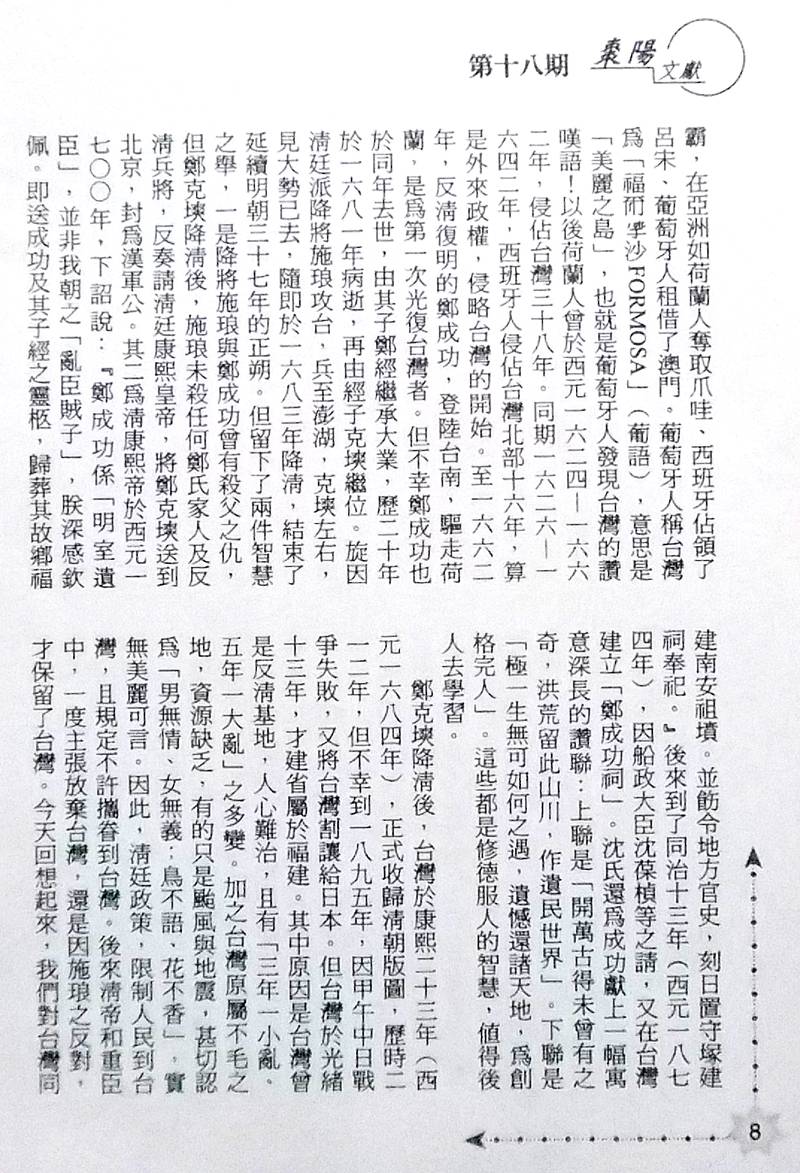 第十八期
棗陽
文獻
霸，在亞洲如荷蘭人奪取爪哇、西班牙佔領了
呂宋、葡萄牙人租借了澳門。葡萄牙人稱台灣
為「福爾摩沙FORMOSA」（葡語），意思是
「美麗之島」，也就是葡萄牙人發現台灣的讚
嘆語！以後荷蘭人曾於西元一六二四—一六六
二年，侵佔台灣三十八年。同期一六二六—一
六四二年，西班牙人侵佔台灣北部十六年，算
是外來政權，侵略台灣的開始。至一六六二
年，反清復明的鄭成功，登陸台南，驅走荷
蘭，是為第一次光復台灣者。但不幸鄭成功也
於同年去世，由其子鄭經繼承大業，歷二十年
於一六八一年病逝，再由經子克塽繼位。旋因
清廷派降將施琅攻台，兵至澎湖，克塽左右，
見大勢已去，隨即於一六八三年降清，結束了
延續明朝三十七年的正朔。但留下了兩件智慧
之舉，一是降將施琅與鄭成功曾有殺父之仇，
但鄭克塽降清後，施琅未殺任何鄭氏家人及反
清兵將，反奏請清廷康熙皇帝，將鄭克塽送到
北京，封為漢軍公。其二為清康熙帝於西元一
七〇〇年，下詔說：『鄭成功係「明室遺
臣」，並非我朝之「亂臣賊子」，朕深感欽
佩。即送成功及其子經之靈柩，歸葬其故鄉福
建南安祖墳。並飭令地方官史，刻日置守塚建
祠奉祀。』後來到了同治十三年（西元一八七
四年），因船政大臣沈葆楨等之請，又在台灣
建立「鄭成功祠」。沈氏還為成功獻上一幅寓
意深長的讚聯：上聯是「開萬古得未曾有之
奇，洪荒留此山川，作遺民世界」。下聯是
「極一生無可如何之遇，遺憾還諸天地，為創
格完人」。這些都是修德服人的智慧，值得後
人去學習。
鄭克塽降清後，台灣於康熙二十三年（西
元一六八四年），正式收歸清朝版圖，歷時二
一二年，但不幸到一八九五年，因甲午中日戰
爭失敗，又將台灣割讓給日本。但台灣於光緒
十三年，才建省屬於福建。其中原因是台灣曾
是反清基地，人心難治，且有「三年一小亂。
五年一大亂」之多變。加之台灣原屬不毛之
地，資源缺乏，有的只是颱風與地震，甚切認
為「男無情、女無義；鳥不語、花不香」，實
無美麗可言。因此，清廷政策，限制人民到台
灣，且規定不許攜眷到台灣。後來清帝和重臣
中，一度主張放棄台灣，還是因施琅之反對，
才保留了台灣。今天回想起來，我們對台灣同
8